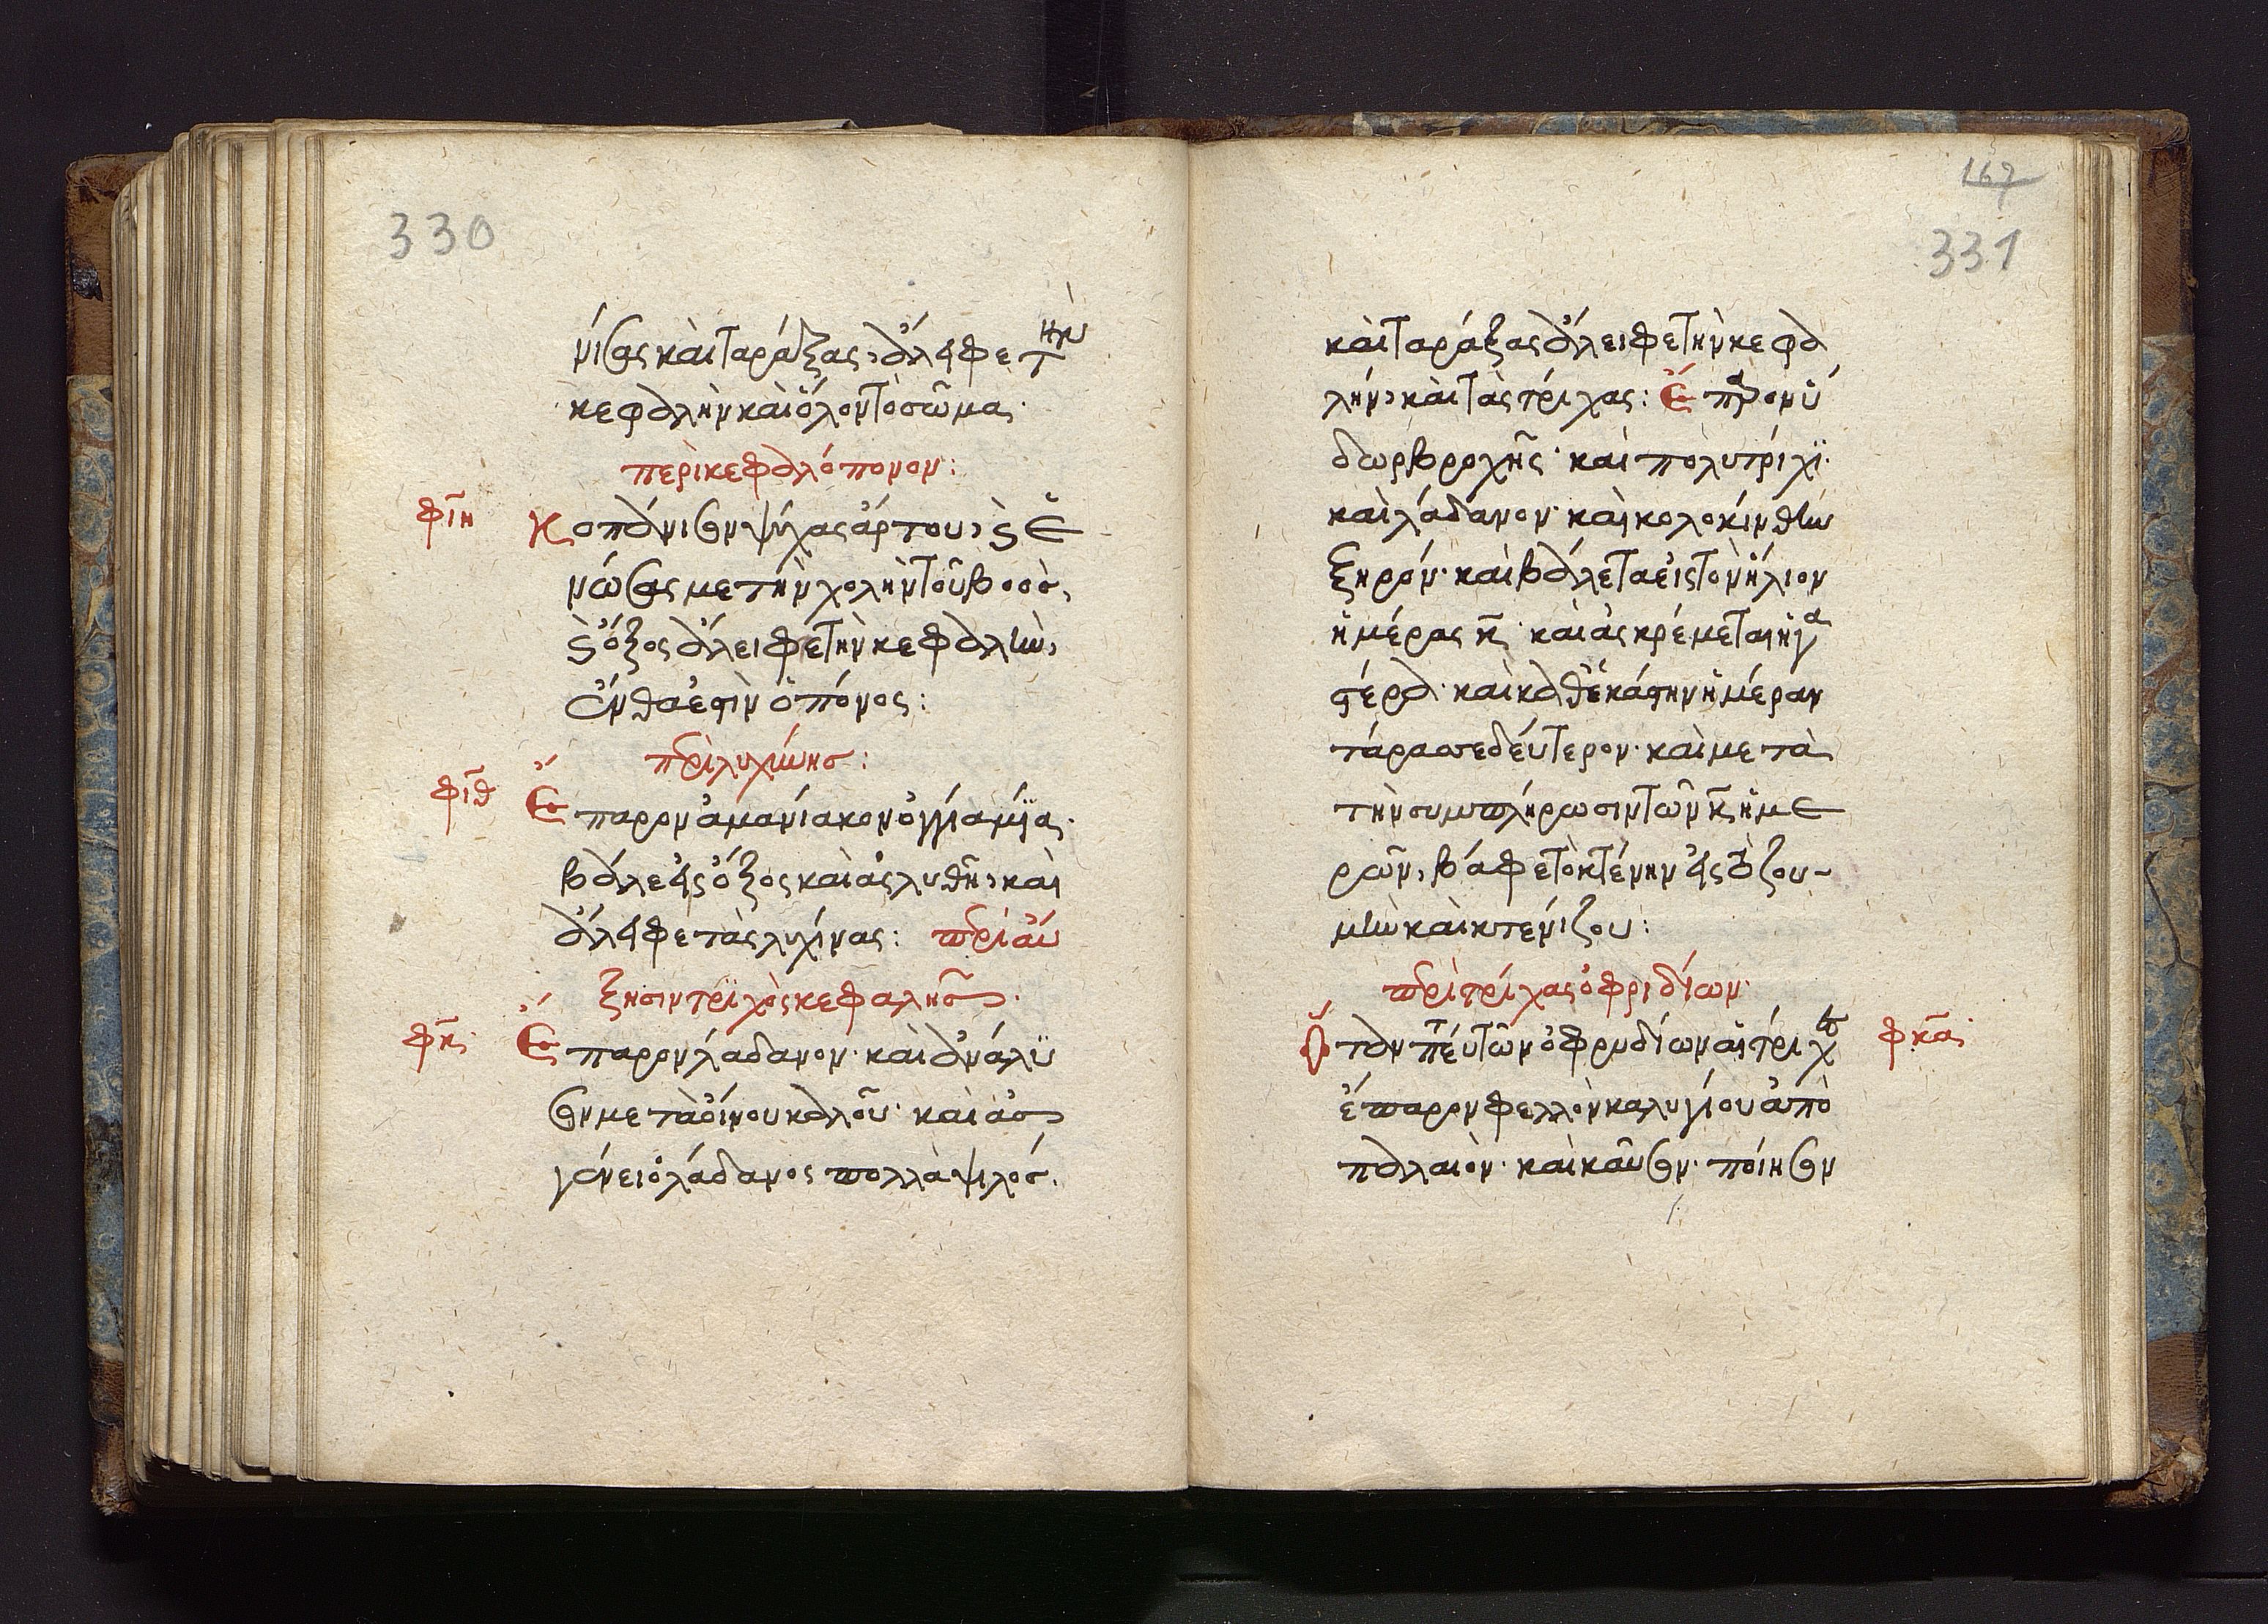 330
νίσας καὶ ταράξας, ἄλειφε τὴν
κεφαλὴν καὶ ὅλον τὸ σῶμα.
περὶ κεφαλόπονον:
φιη Κοπάνισον ψίχας ἄρτου, καὶ ἑ
νώσας με τὴν χολὴν τοῦ βοὸς,
καὶ ὄξος ἄλειφε τὴν κεφαλὴν,
ἔνθα ἐστὶν ὁ πόνος:
περὶ λυχίνης:
φιθ Ἔπαρον ἀμανίακον ὀγγία μίας.
βάλε εἰς ὄξος καὶ ἂς λυθῆ, καὶ
ἄλειφε τὰς λυχίνας: περὶ αὔ
ξησιν τριχὸς κεφαλῆς.
φκ Ἔπαρον λάδανον. καὶ ἀνάλυ
σον μετὰ οἴνου καλοῦ. καὶ ἂς
γένει ὁ λάδανος πολλὰ ψιλός.
167
331
καὶ ταράξας ἄλειφε τὴν κεφα
λήν, καὶ τὰς τρίχας: Ἔπαρον ὕ
δωρ βροχῆς. καὶ πολυτρίχι.
καὶ λάδανον. καὶ κολοκίνθην
ξηράν. καὶ βάλε τα εἰς τὸν ἥλιον
ἡμέρας κ. καὶ ἂς κρέμεται ἡ γα
στέρα. καὶ καθ' ἑκάστην ἡμέραν
τάρασσε δεύτερον. καὶ μετὰ
τὴν συμπλήρωσιν τῶν κ ἡμε
ρῶν, βάφε τὸ κτένην εἰς τὸ ζου-
μὶν καὶ κτενίζου:
περὶ τρίχας ὀφριδίων.
Ὅταν πέυτων ὀφρυδίων αἱ τρίχες φκα
ἔπαρον φελλὸν καλυγίου ἀπὸ
παλαιὸν. καὶ καῦσον. ποίησον